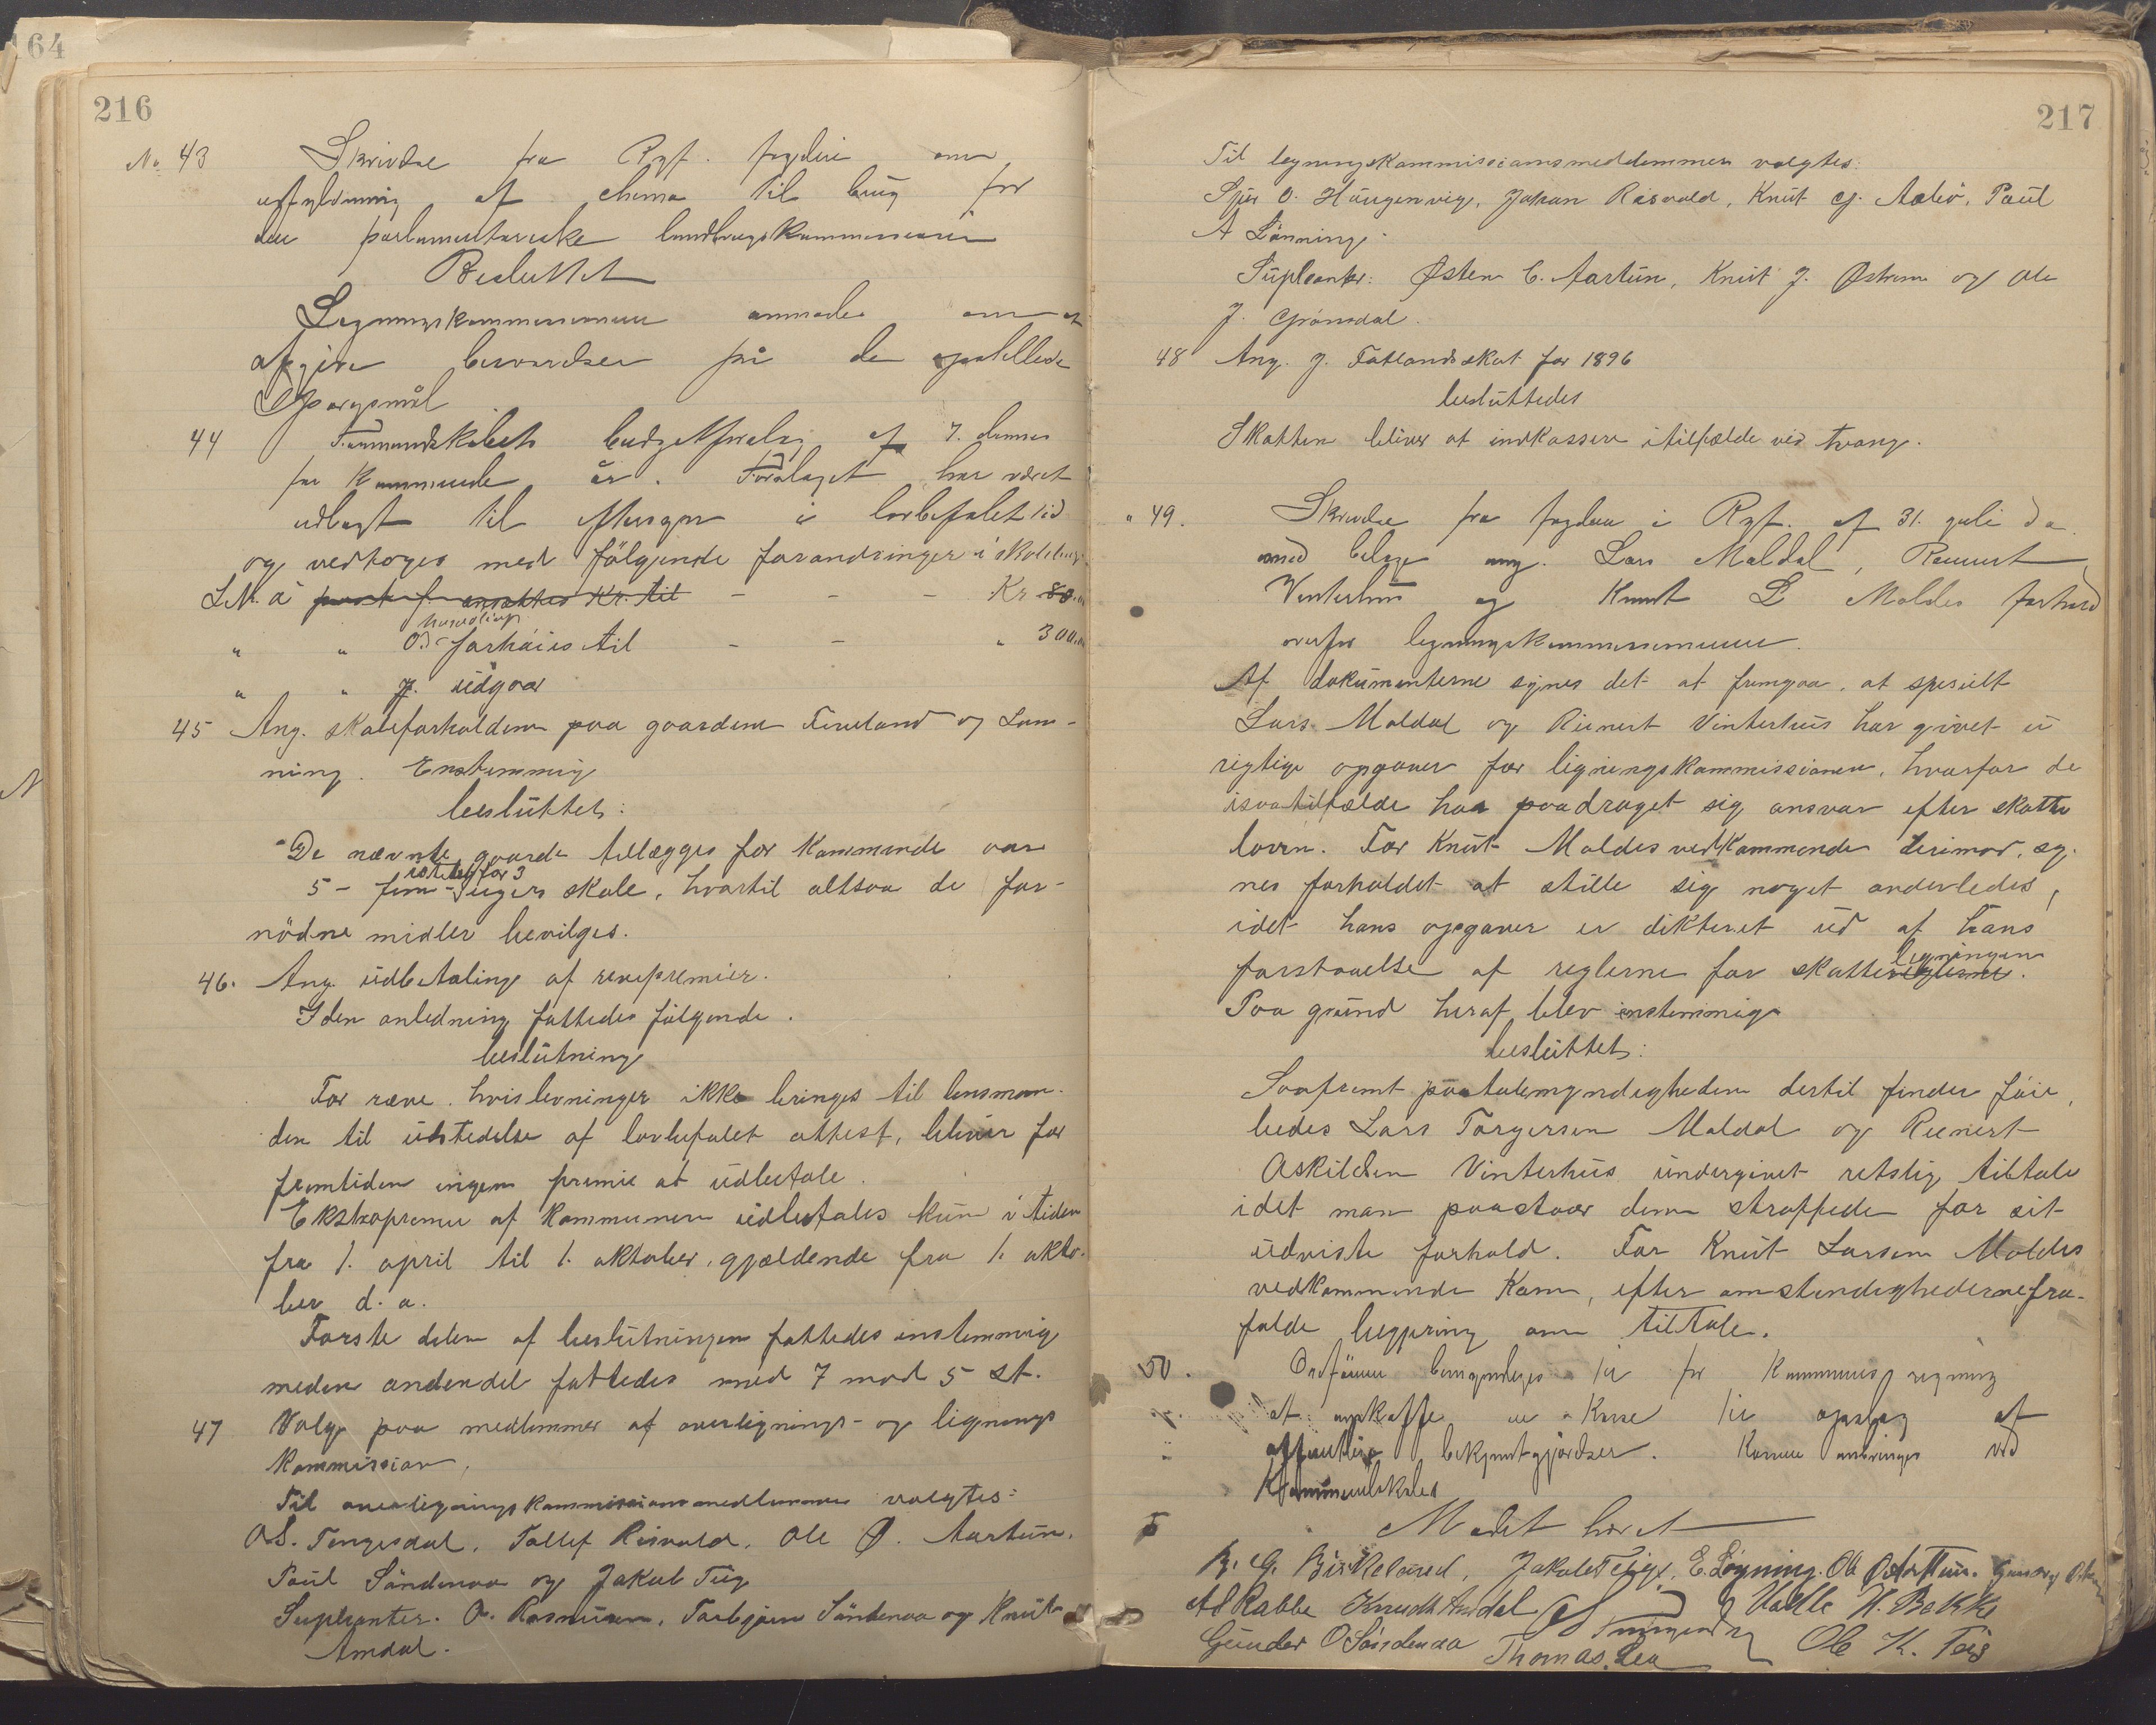 64
216
No 43 Skrivelse fra Ryf. fogderi om
udfyldning af chema til brug for
den parlamentariske landbrugskommission
Besluttet
Ligningskommissionen anmodes om at
afgive besvarelser på de opstillede
Spørgsmål
44 Formandskabets budgetforslag af 7. dennes
for kommende år. Forslaget har været
udlagt til eftersyn i lovbefalet tid
og vedtoges med følgende forandringer i skolebudg.
L.N. a post f. ansættes Kr. til - - - Kr 80.00
" " O. forhøies til - - " 300.00
" " p. udgaar
45 Ang. skoleforholdene paa gaardene Fineland og Løn-
ning. Enstemmig
besluttet:
"De nævnte gaarde tillægges for kommende aar
istedetfor 3
5 - fem - ugers skole, hvortil altsaa de for-
nödne midler bevilges.
46. Ang. udbetaling af revepremier.
I den anledning fattedes følgende
beslutning
For ræve, hvis levninger ikke bringes til lensman-
den til udstedelse af lovbefalet attest, bliver for
fremtiden ingen premie at udbetale.
Ekstrapremie af kommunen udbetales kun i tiden
fra 1. april til 1. oktober, gjældende fra 1. okto-
ber d. a.
Første delen af beslutningen fattedes enstemmig
meden andendel fattedes med 7 mod 5 st.
47 Valg paa medlemmer af overlignings- og lignings
kommission,
Til overligningskommissionsmedlemmer valgtes:
O.S. Tengesdal, Tollef Risvold, Ole Ø. Aartun,
Paul Söndenaa og Jakob Teig
Supleanter. O. Rasmusen, Torbjørn Söndenaa og Knut
Amdal.
217
Til legningskommissionsmeddemmer valgtes:
O. Haugenvig, Johan Risvold, Knut Aalvö, Paul
A Lönning.
Supleanter: Østen C. Aartun, Knut J. Østrem og Ole
J. Grönsdal.
48 Ang. J. Fatlands skat for 1896
besluttedes
Skatten bliver at indkassere i tilfælde ved tvang.
" 49. Skrivelse fra fogden i Ryf. af 31. juli d a
med bilage ang. Lars Maldal, Reinert
Vinterhus og Knut L Moldes forhold
overfor ligningskommissionen.
Af dokumenterne synes det at fremgaa, at spesielt
Lars Maldal og Reinert Vinterhus har givet u
rigtige opgaver for ligningskommissionen, hvorfor de
isaatilfælde har paadraget sig ansvar efter skatte
loven. For Knut Moldes vedkommende derimod, sy-
nes forholdet at stille sig noget anderledes,
idet hans opgaver er dikteret ud af hans
legningen
forstaaelse af reglerne for skattereglerne.
Paa grund heraf blev enstemmig
besluttet:
Saafremt paatalemyndigheden dertil finder føie,
bedes Lars Torgersen Maldal og Reinert
Askildsen Vinterhus undergivet retslig tiltale
idet man paastaar dem straffede for sit
udviste forhold. For Knut Larsen Moldes
vedkommende kan, efter omstendighederne fra-
falde begjæring om tiltale.
50. Ordføreren bemyndiges til for kommunens regning
at anskaffe en kasse til opslag af
offentlige bekjentgjørelser. Kassen anbringes ved
Kommunelokalet
Mødet hævet
B. G. Birkeland, Jakob Teig, E. Løyning. Ole Ø Aartun.
Ad Rabbe Knudt Amdal Valle H. Bakke
Gunder O Söndenaa Thomas Lea Ole K. Teig